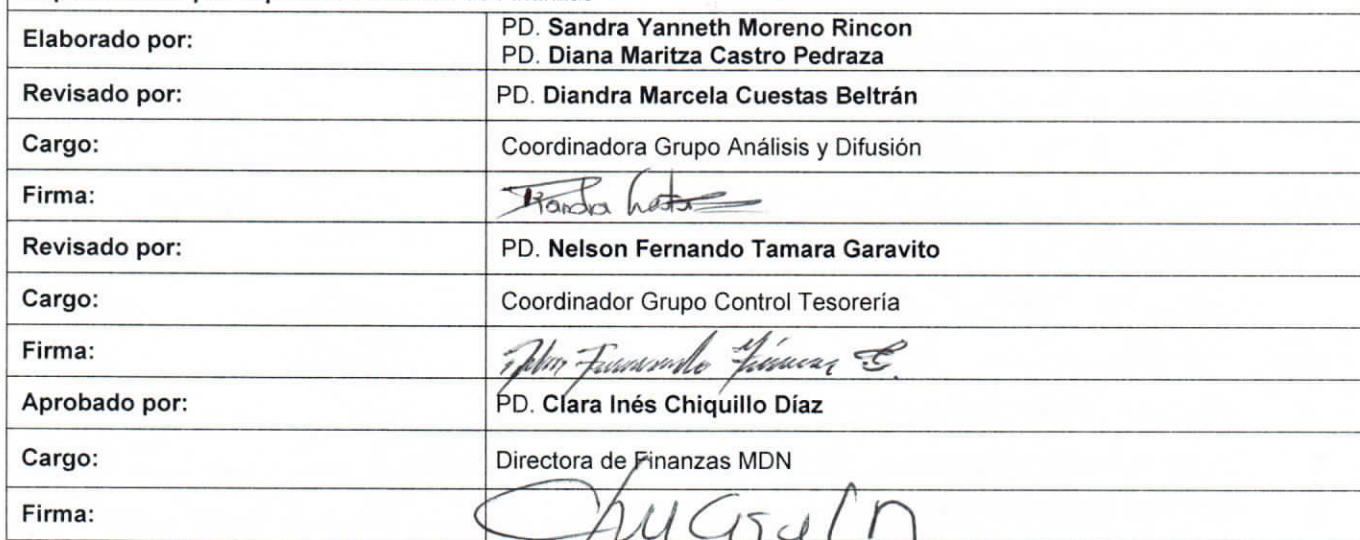 Elaborado por:
PD. Sandra Yanneth Moreno Rincon
PD. Diana Maritza Castro Pedraza
Revisado por:
PD. Diandra Marcela Cuestas Beltrán
Cargo:
Coordinadora Grupo Análisis y Difusión
Firma:
Revisado por:
PD. Nelson Fernando Tamara Garavito
Cargo:
Coordinador Grupo Control Tesorería
Firma:
Aprobado por:
PD. Clara Inés Chiquillo Díaz
Cargo:
Directora de Finanzas MDN
Firma: